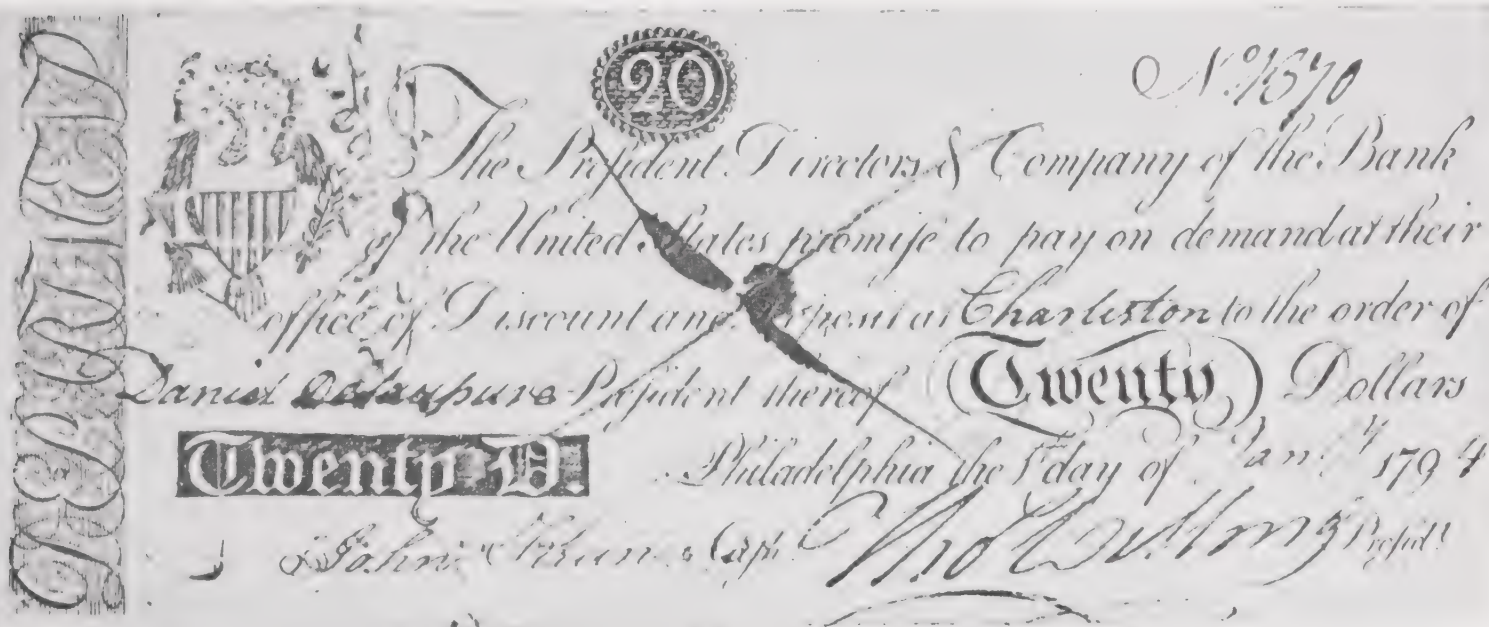 20
The President Directors & Company of the Bank
of the United States promise to pay on demand at their
office of Discount and Deposit at Charleston to the order of
Daniel President thereof Twenty Dollars
Twenty D. Philadelphia the 1 day of Jan.y 1794
John Cash. Tho Willing Presid.t